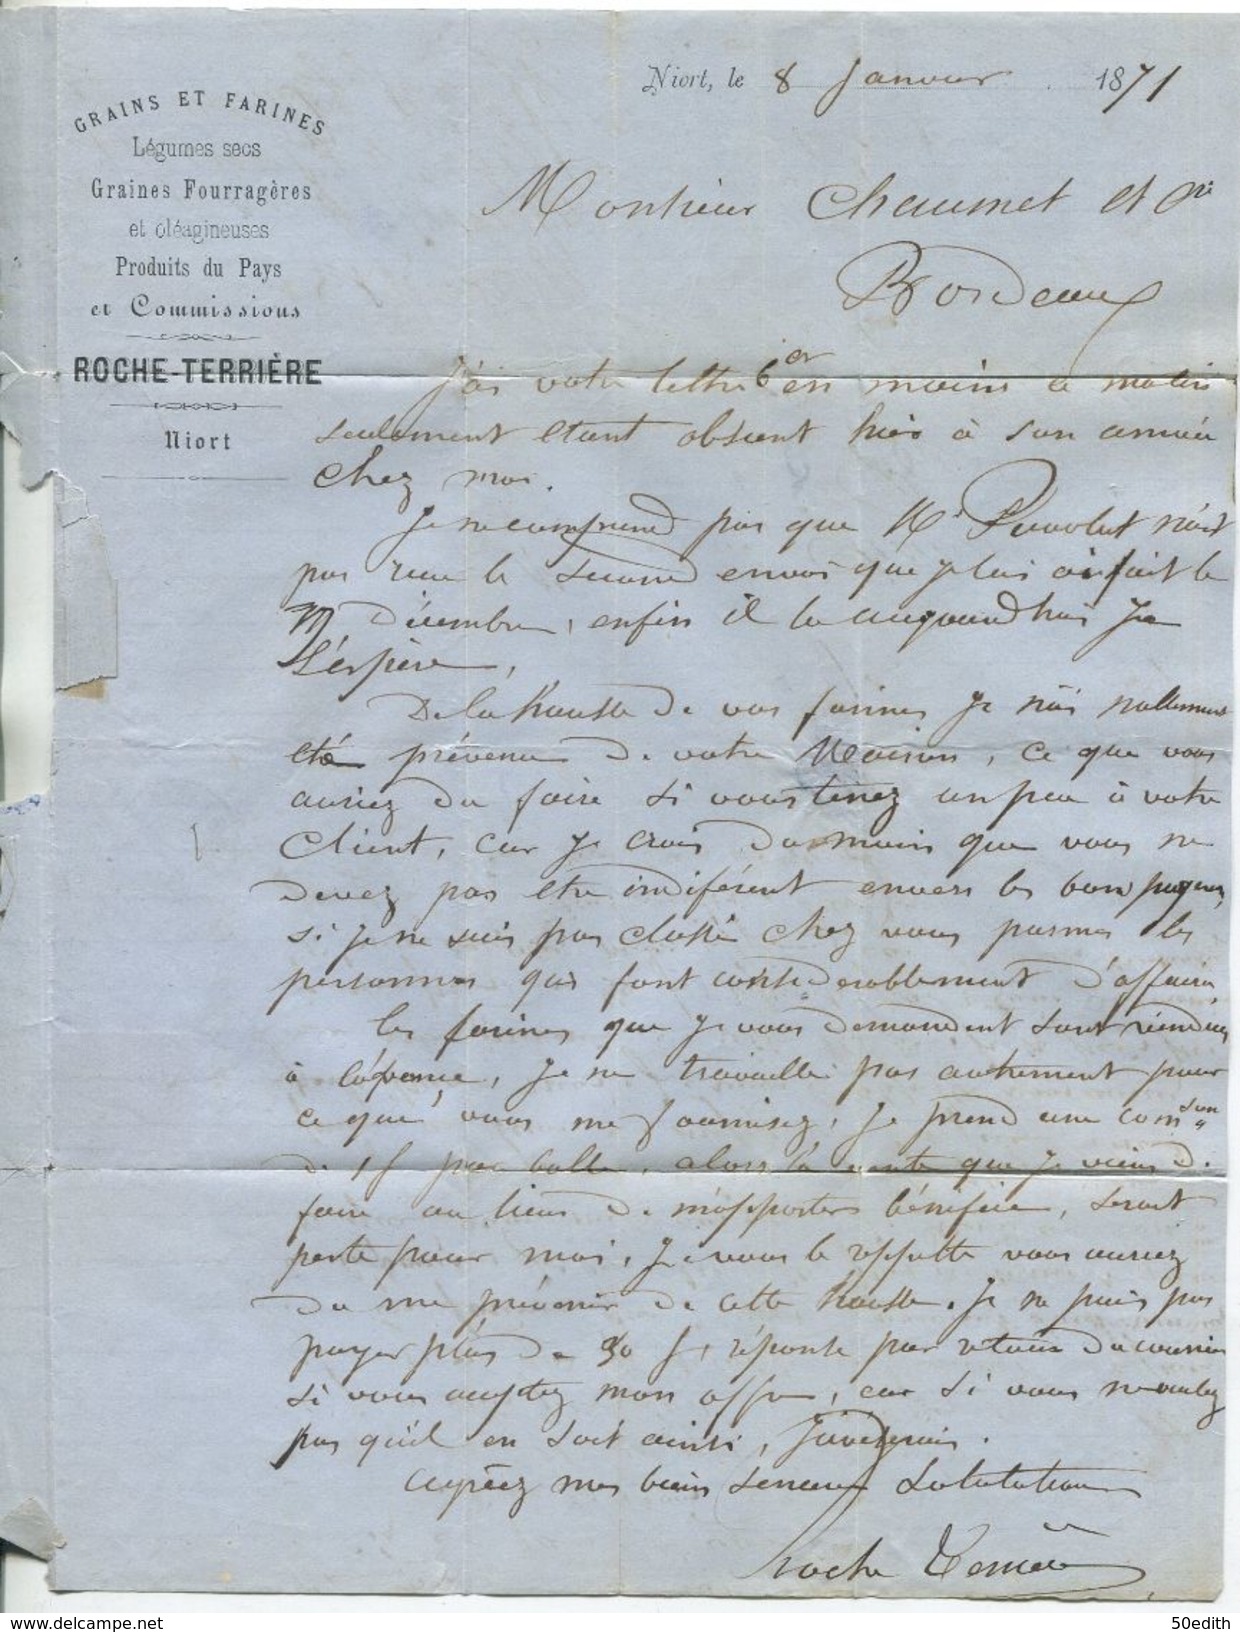 GRAINS ET FARINES
Légumes secs
Graines Fourragères
et oléagineuses
Produits du Pays
et Commissions
ROCHE-TERRIÈRE
Niort
Niort, le 8 Janvier 1871
Monsieur Chaumet et Cie
Bordeaux
J'ai votre lettre 6 er en mains ce matin
seulement etant absent hier à son arrivée
chez moi.
Je ne comprend pas que Mr n'est
pas recu le second envoi que je lui ai fait le
Décembre, enfin il l'a aujourd'hui je
l'espère,
De la hausse de vos farines je n'ai nullement
été prévenu de votre Maison, ce que vous
auriez du faire si vous tenez un peu à votre
Client, car je crois du moins que vous ne
devez pas etre indiférent envers les bons payeurs,
si je ne suis pas classé chez vous parmi les
personnes qui font considerablement d'affaires
les farines que je vous demandent sont viendues
à l'avance, je ne travaille pas autrement pour
ce que vous me fournisez, je prend une comson
de 1f par balle, alors la vente que je viens de
faire au lieu de m'apporter bénéfice, serait
perte pour moi, je vous le repette vous auriez
du me prévenir de cette hausse. Je ne puis pas
payer plus de 50 f, réponse par retour du courrier
si vous acceptez mon offre, car si vous ne voulez
pas qu'il en soit ainsi,
agréez mes bien sinceres Salutations
Roche Terrière
50edith